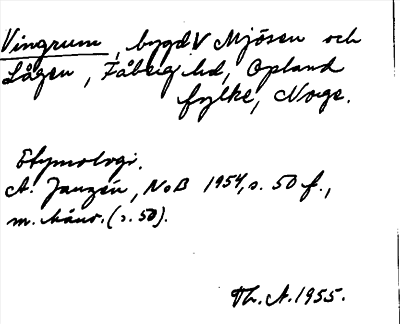 Vingrum, bygd V Mjösen och
Lågen, Fåberg hd, Opland
fylke, Norge.
Etymologi.
A. Janzén, NoB 1954, s. 50 f.,
m. hänv. (s. 50).
Th. A. 1955.